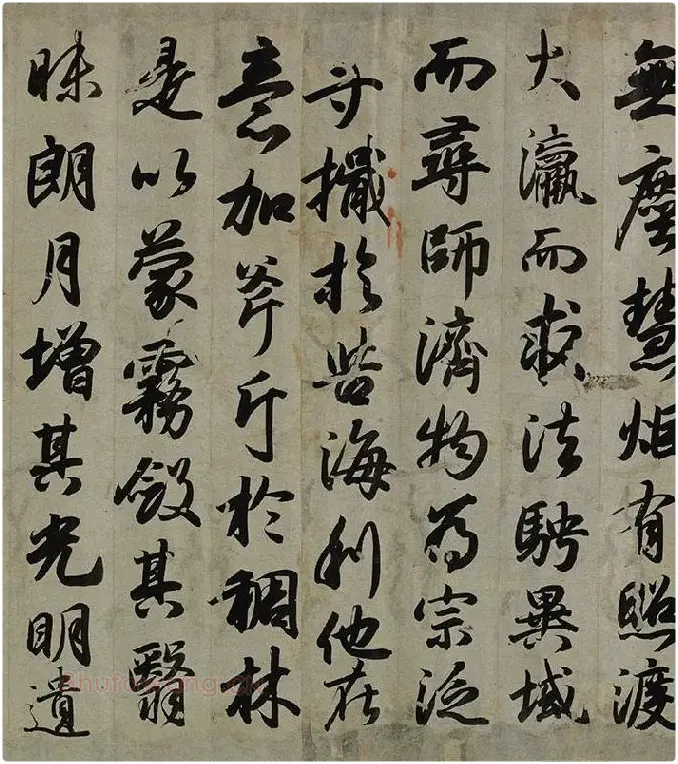 無塵慧炬有照渡
大瀛而求法騁異域
而尋師濟物為宗泛
寸檝於苦海利他在
意加斧斤於稠林
是以蒙霧斂其翳
昧朗月增其光明遺